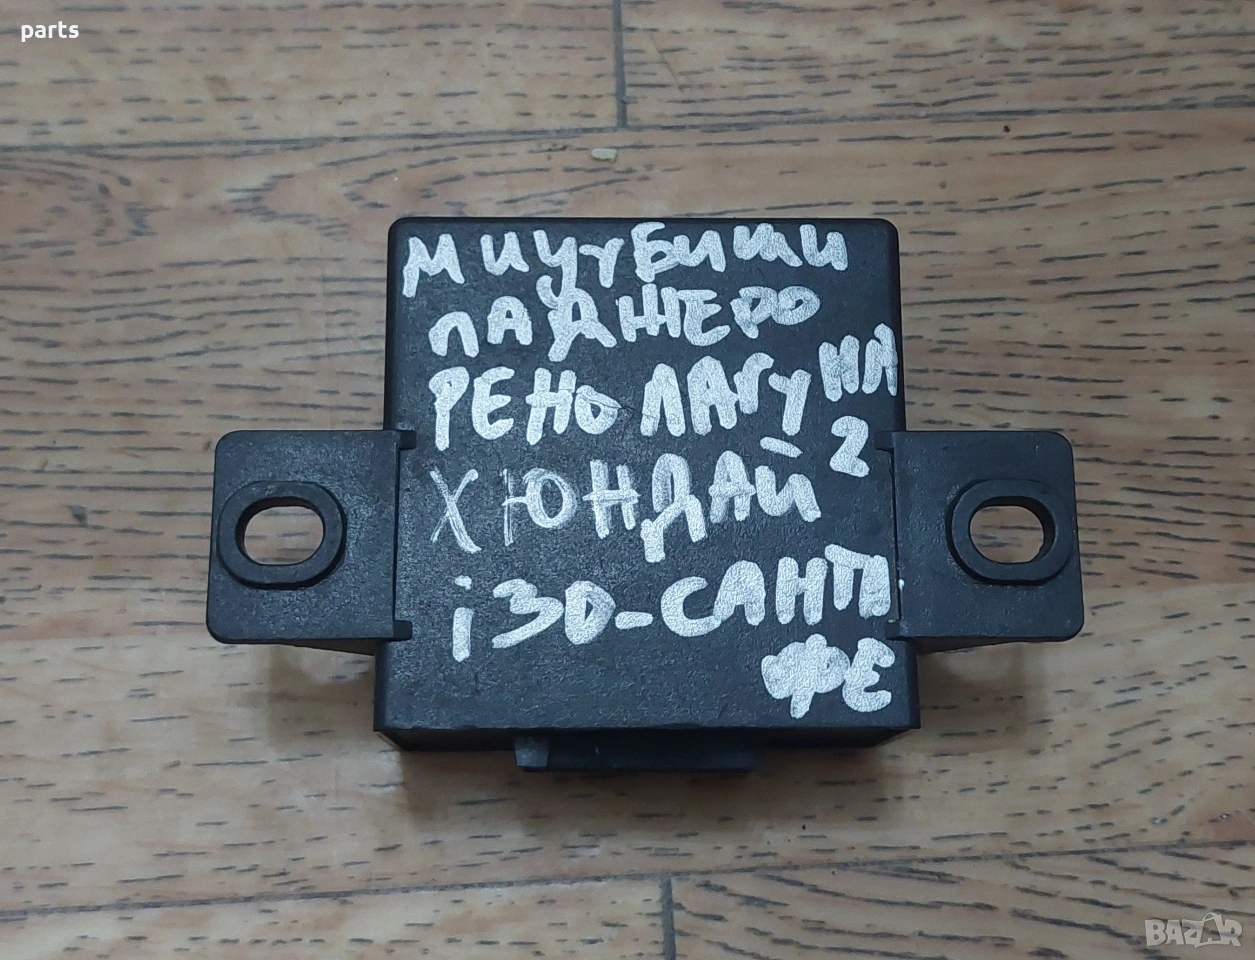 parts
МИЦУБИШИ
ПАДЖЕРО
РЕНО ЛАГУНА
2
ХЮНДАЙ
i30-САНТА
ФЕ
BAZAR